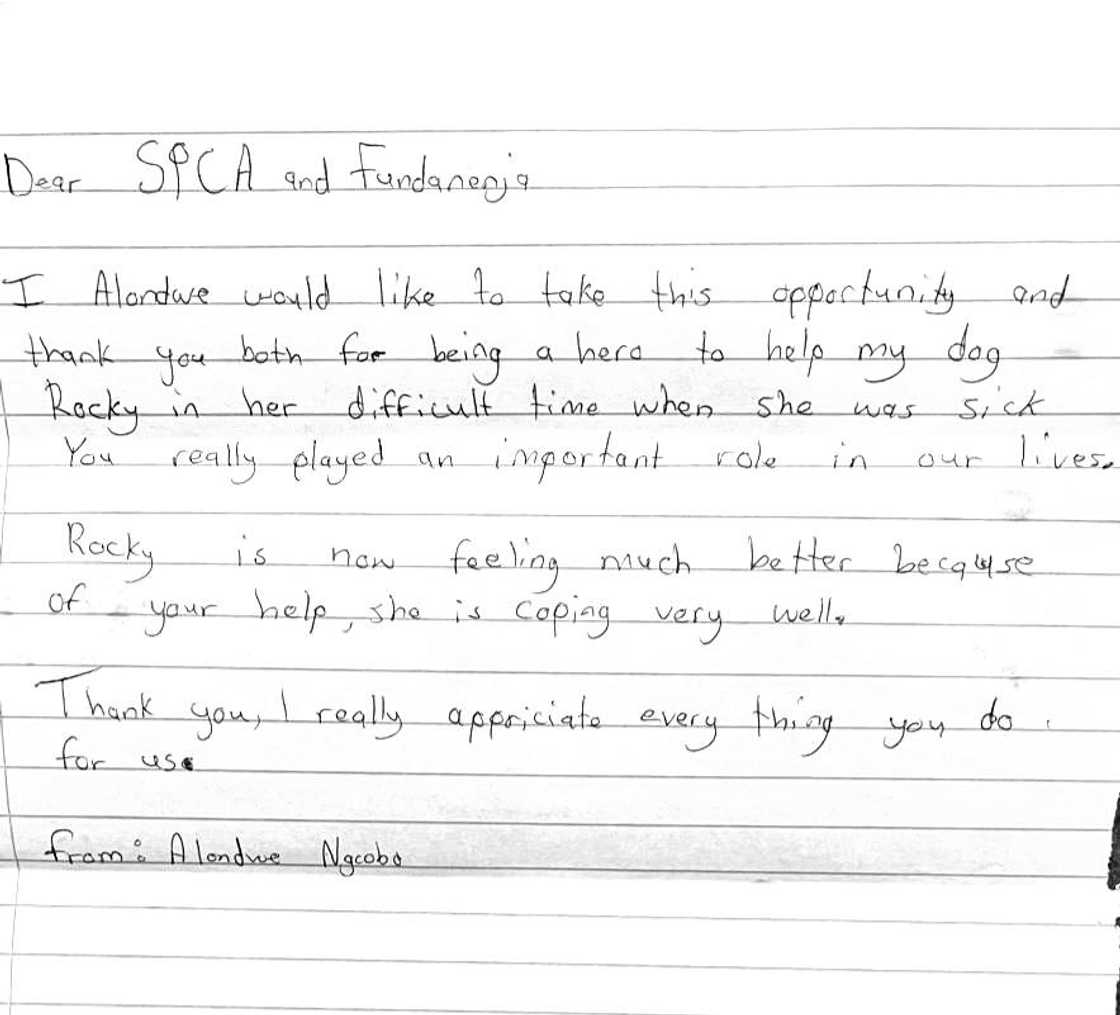 Dear SPCA and Fundanenja
I Alondwe would like to take this opportunity and
thank you both for being a hero to help my dog
Rocky in her difficult time when she was sick
You really played an important role in our lives.
Rocky is now feeling much better because
of your help, she is coping very well.
Thank you, I really appriciate every thing you do
for us.
from: Alondwe Ngcobo